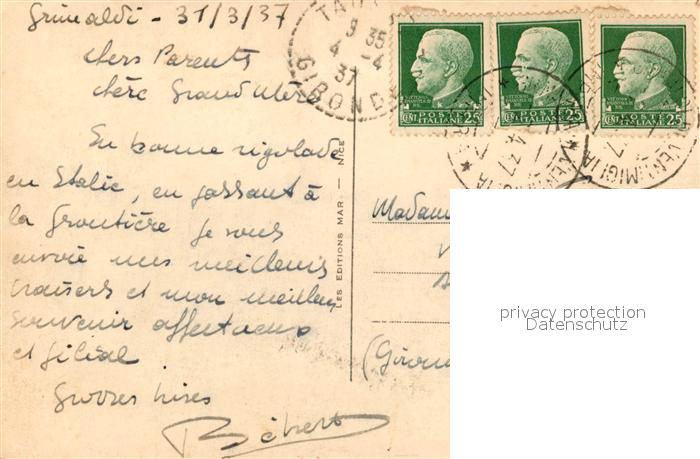 Grimaldi - 31/3/37
chers Parents
chère Grand Mère
En bonne rigolade
en Italie, en passant à
la frontière je vous
envoie mes meilleurs
baisers et mon meilleur
souvenir affectueux
et filial
Grosses bises
Bébert
LES EDITIONS MAR. — NICE
9 35
4 - 4
37
GIRONDE
VITTORIO EMANUELE III
POSTE ITALIANE
CENT. 25
VITTORIO EMANUELE III
POSTE ITALIANE
CENT. 25
VITTORIO EMANUELE III
POSTE ITALIANE
CENT. 25
VENTIMIGLIA
4.37
Madam
(Giron
privacy protection
Datenschutz